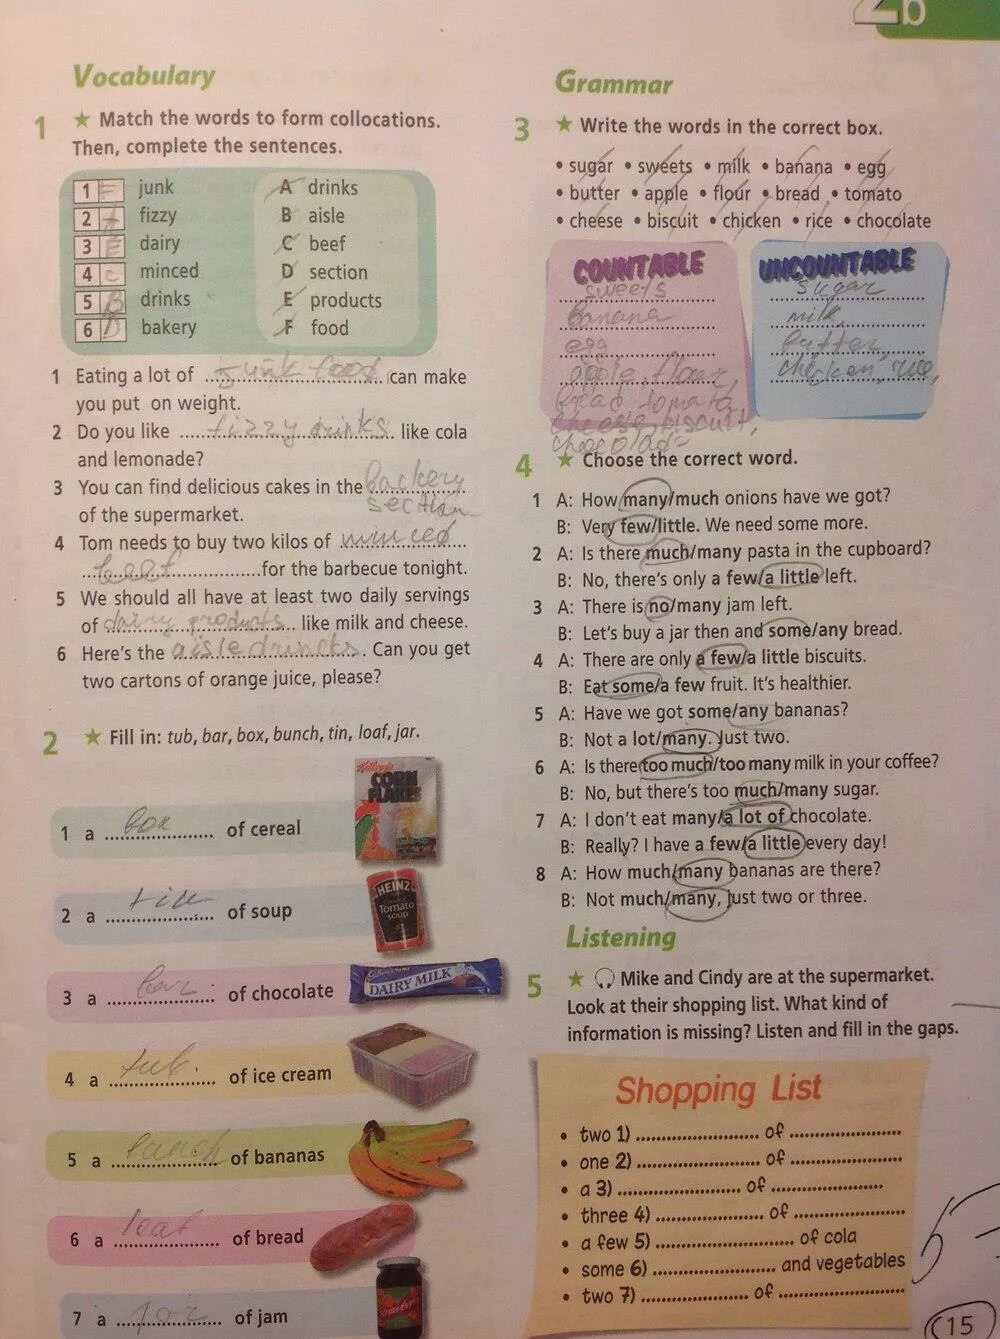 2b
Vocabulary
1 ★ Match the words to form collocations.
Then, complete the sentences.
1 F junk
2 A fizzy
3 E dairy
4 C minced
5 B drinks
6 D bakery
A drinks
B aisle
C beef
D section
E products
F food
1 Eating a lot of junk food can make
you put on weight.
2 Do you like fizzy drinks like cola
and lemonade?
3 You can find delicious cakes in the backery
section
of the supermarket.
4 Tom needs to buy two kilos of minced
beef for the barbecue tonight.
5 We should all have at least two daily servings
of dairy products like milk and cheese.
6 Here's the aisle drincks. Can you get
two cartons of orange juice, please?
2 ★ Fill in: tub, bar, box, bunch, tin, loaf, jar.
Kellogg's
CORN
FLAKES
1 a box of cereal
HEINZ
Tomato
soup
2 a tin of soup
DAIRY MILK
3 a bar of chocolate
4 a tub of ice cream
5 a bunch of bananas
6 a loaf of bread
7 a jar of jam
Grammar
3 ★ Write the words in the correct box.
• sugar • sweets • milk • banana • egg
• butter • apple • flour • bread • tomato
• cheese • biscuit • chicken • rice • chocolate
COUNTABLE
sweets
banana
egg
apple, flour,
bread tomato
cheese, biscuit,
UNCOUNTABLE
sugar
milk
butter
chicken, rice,
4 ★ Choose the correct word.
1 A: How many/much onions have we got?
B: Very few/little. We need some more.
2 A: Is there much/many pasta in the cupboard?
B: No, there's only a few/a little left.
3 A: There is no/many jam left.
B: Let's buy a jar then and some/any bread.
4 A: There are only a few/a little biscuits.
B: Eat some/a few fruit. It's healthier.
5 A: Have we got some/any bananas?
B: Not a lot/many. Just two.
6 A: Is there too much/too many milk in your coffee?
B: No, but there's too much/many sugar.
7 A: I don't eat many/a lot of chocolate.
B: Really? I have a few/a little every day!
8 A: How much/many bananas are there?
B: Not much/many, just two or three.
Listening
5 ★ Mike and Cindy are at the supermarket.
Look at their shopping list. What kind of
information is missing? Listen and fill in the gaps.
Shopping List
• two 1) ........................ of ........................
• one 2) ........................ of ........................
• a 3) ........................ of ........................
• three 4) ........................ of ........................
• a few 5) ........................ of cola
• some 6) ........................ and vegetables
• two 7) ........................ of ........................
15